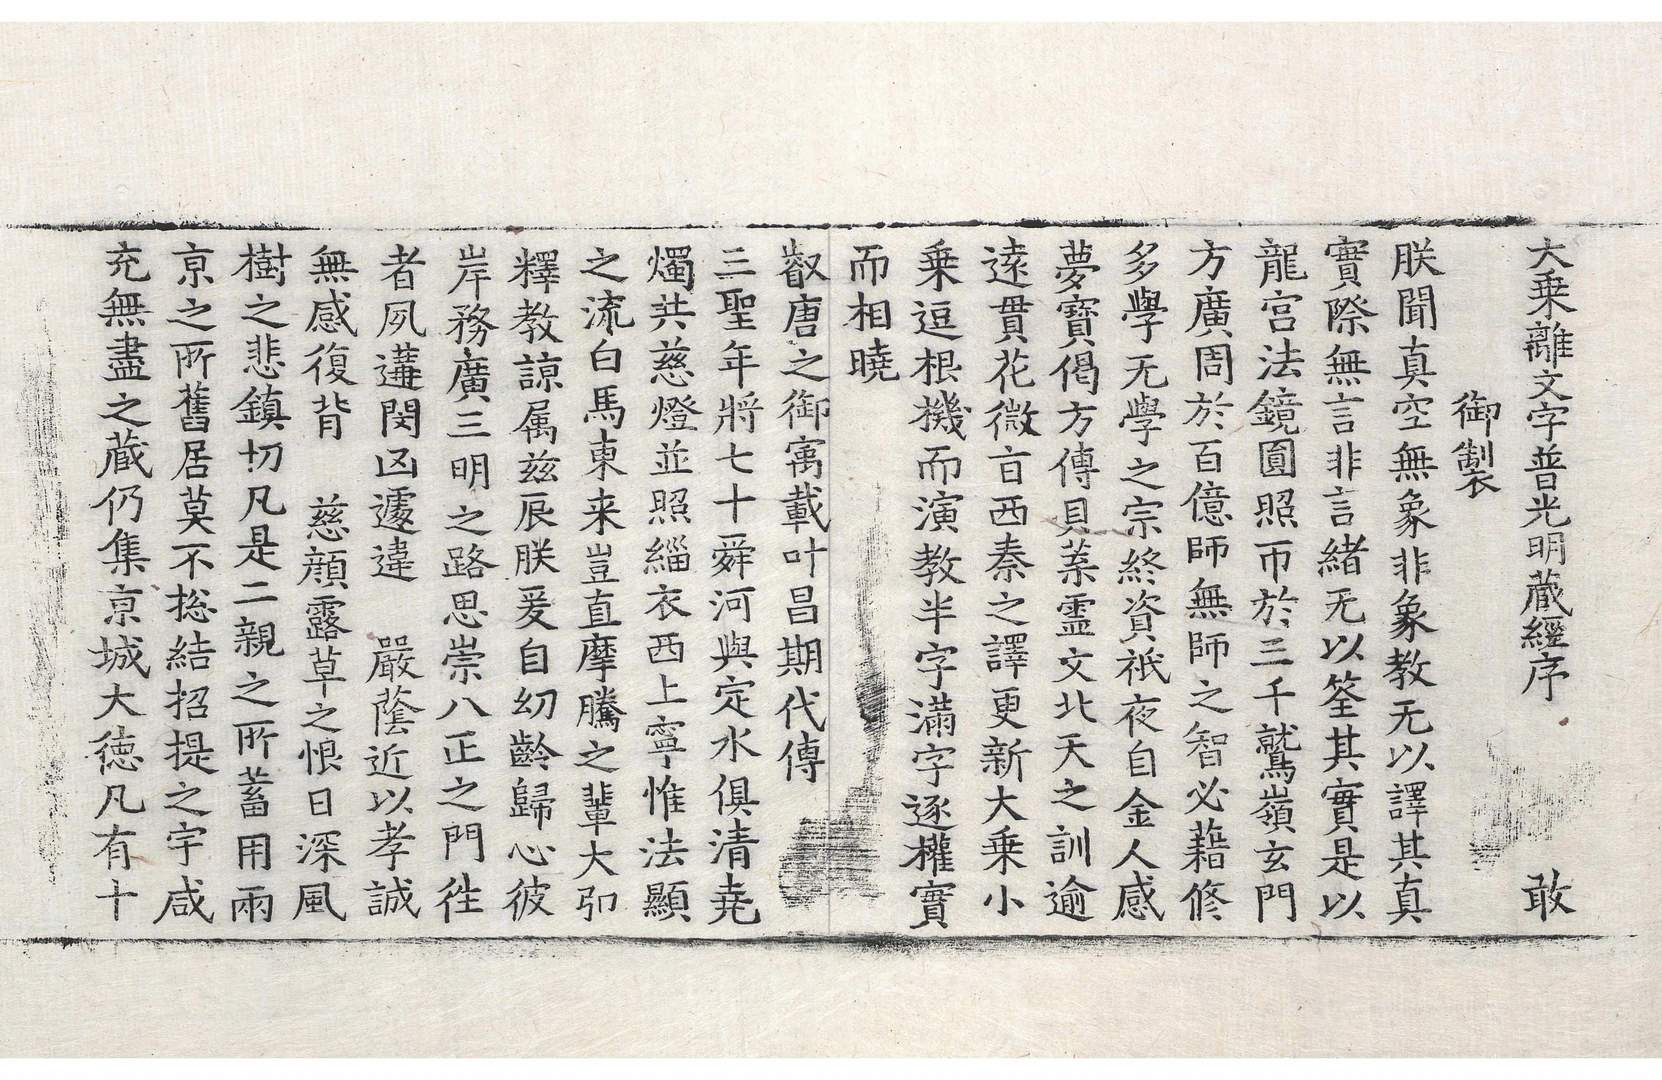 大乗離文字普光明蔵經序 敢
御製
朕聞真空無象非象教无以譯其真
實際無言非言緒无以筌其實是以
龍宮法鏡圓照帀於三千鷲嶺玄門
方廣周於百億師無師之智必藉修
多學无學之宗終資祇夜自金人感
夢寶偈方傳貝葉靈文北天之訓逾
逺貫花微言西秦之譯更新大乗小
乗逗根機而演教半字滿字逐權實
而相曉
叡唐之御寓載叶昌期代傳
三聖年將七十舜河與定水俱清堯
燭共慈燈並照緇衣西上寧惟法顯
之流白馬東来豈直摩騰之輩大弘
釋教諒属兹辰朕爰自幼齡歸心彼
岸務廣三明之路思崇八正之門徃
者夙遘閔凶遽違 嚴蔭近以孝誠
無感復背 慈顔露草之恨日深風
樹之悲鎮切凡是二親之所蓄用兩
京之所舊居莫不捴結招提之宇咸
充無盡之蔵仍集京城大徳凡有十